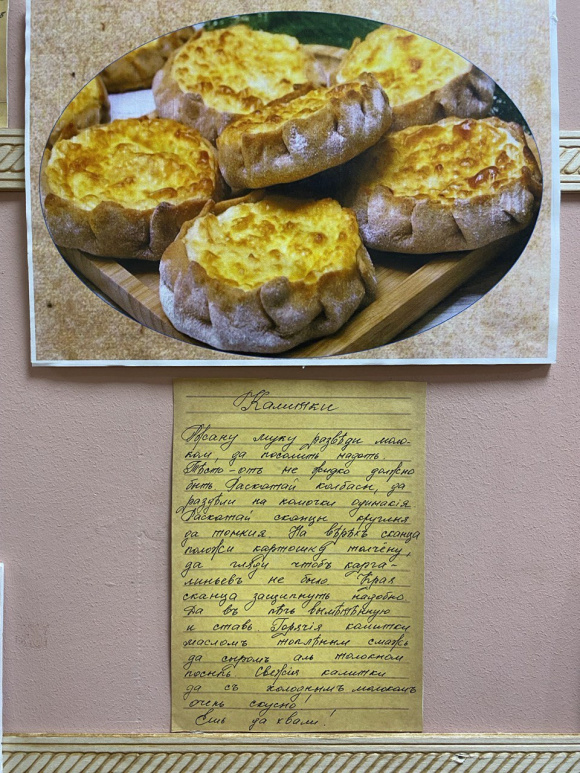 Калитки
Ржану муку разведи моло-
ком, да посолить надоть.
Тѣсто-отъ не жидко должно
быть Раскатай колбасы, да
раздѣли на комочки одинакiя
Раскатай сканцы кругленя
да тонкия. На вѣрьхъ сканца
положи картошку толчёну,
да гляди чтобъ карга-
линьевъ не было Края
сканца защипнуть надобно
Да въ пѣчь
и ставь. Горячiя калитки
масломъ топлянымъ смажь
да сыромъ аль толокном
посыпь Свежiя калитки
да съ холоднымъ молокомъ
очень скусно!
Ешь да хвали!